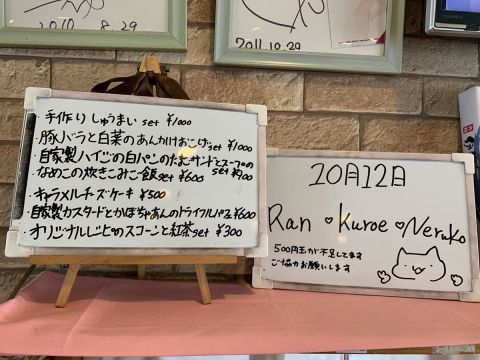 2010.8.29
2011.10.29
・手作りしゅうまいset ¥1000
・豚バラと白菜のあんかけおこげset ¥1000
・自家製ハイジの白パンのたまごサンドとスープのset ¥900
・なめこの炊きこみご飯set ¥600
・キャラメルチーズケーキ ¥500
・自家製カスタードとかぼちゃあんのトライフルパフェ ¥600
・オリジナルレシピのスコーンと紅茶set ¥300
10月12日
Ran ♡ Kuroe ♡ Neruko
500円玉が不足してます
ご協力お願いします